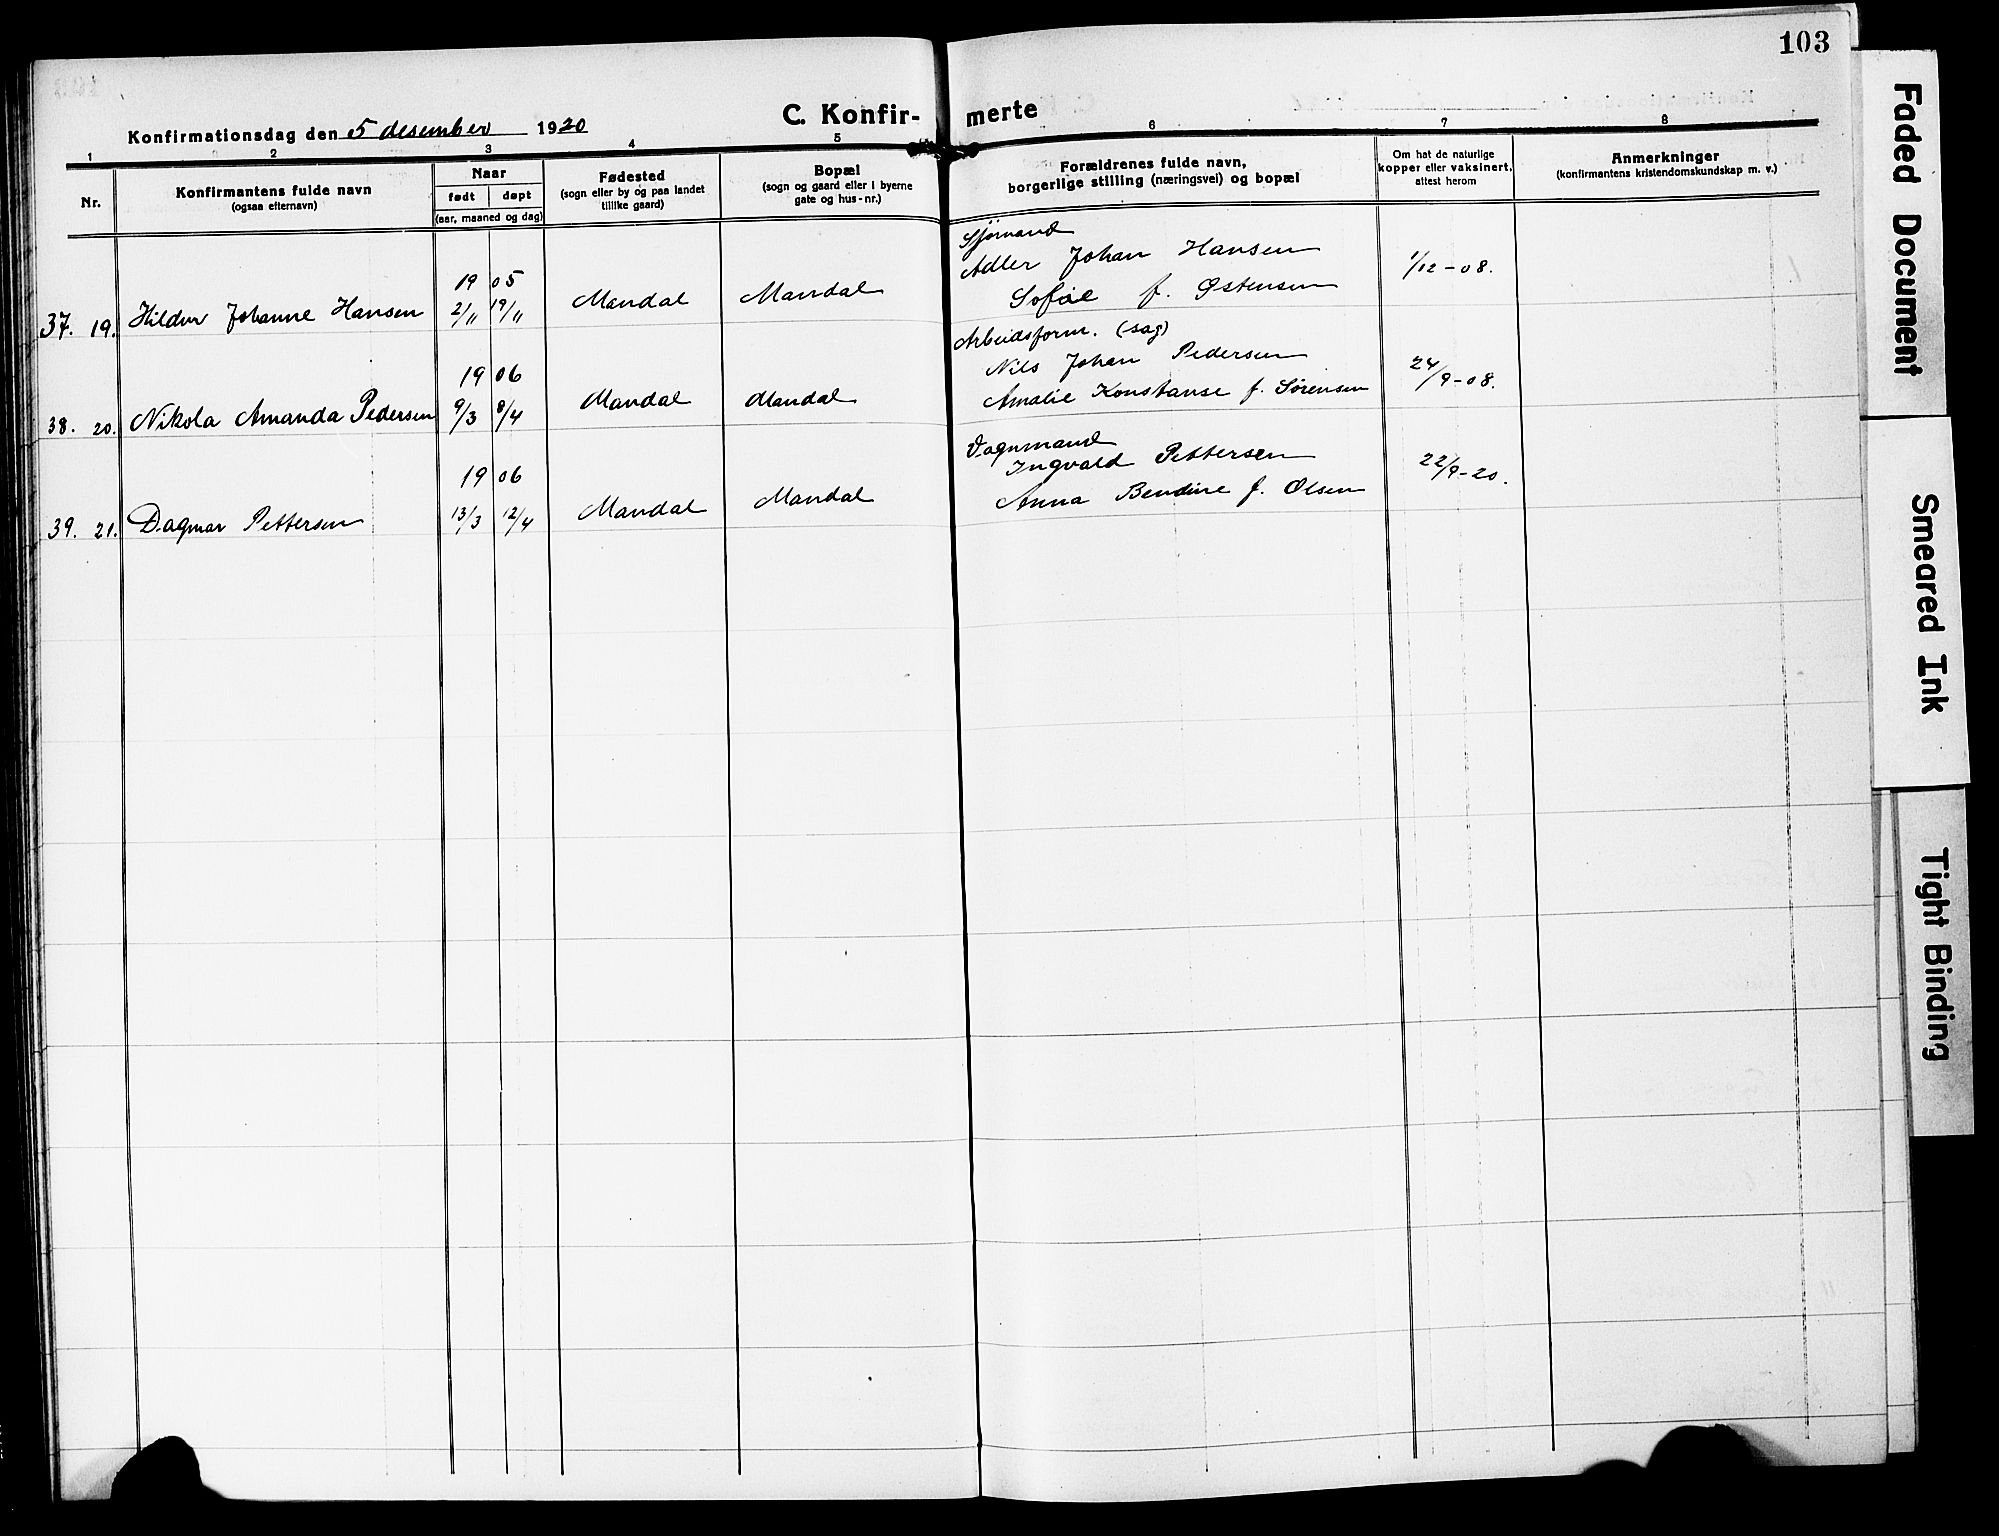 103
C. Konfir- merte
Konfirmationsdag den 5 desember 1920
1 2 3 4 5 6 7 8
Nr.
Konfirmantens fulde navn
(ogsaa efternavn)
Naar
født døpt
(aar, maaned og dag)
Fødested
(sogn eller by og paa landet
tillike gaard)
Bopæl
(sogn og gaard eller i byerne
gate og hus-nr.)
Forældrenes fulde navn,
borgerlige stilling (næringsvei) og bopæl
Om hat de naturlige
kopper eller vaksinert,
attest herom
Anmerkninger
(konfirmantens kristendomskundskap m. v.)
Sjømand
19 05 Adler Johan Hansen 1/12-08.
37. 19. Hildur Johanne Hansen 2/11 19/11 Mandal Mandal Sofie f. Østensen
Arbeidsform. (sag)
19 06 Nils Johan Pedersen 24/9-08.
38. 20. Nikola Amanda Pedersen 9/3 8/4 Mandal Mandal Amalie Konstanse f. Sørensen
Vognmand
19 06 Ingvald Pettersen 22/9-20.
39. 21. Dagmar Pettersen 13/3 12/4 Mandal Mandal Anna Bendine f. Olsen
Faded Document
Smeared Ink
Tight Binding